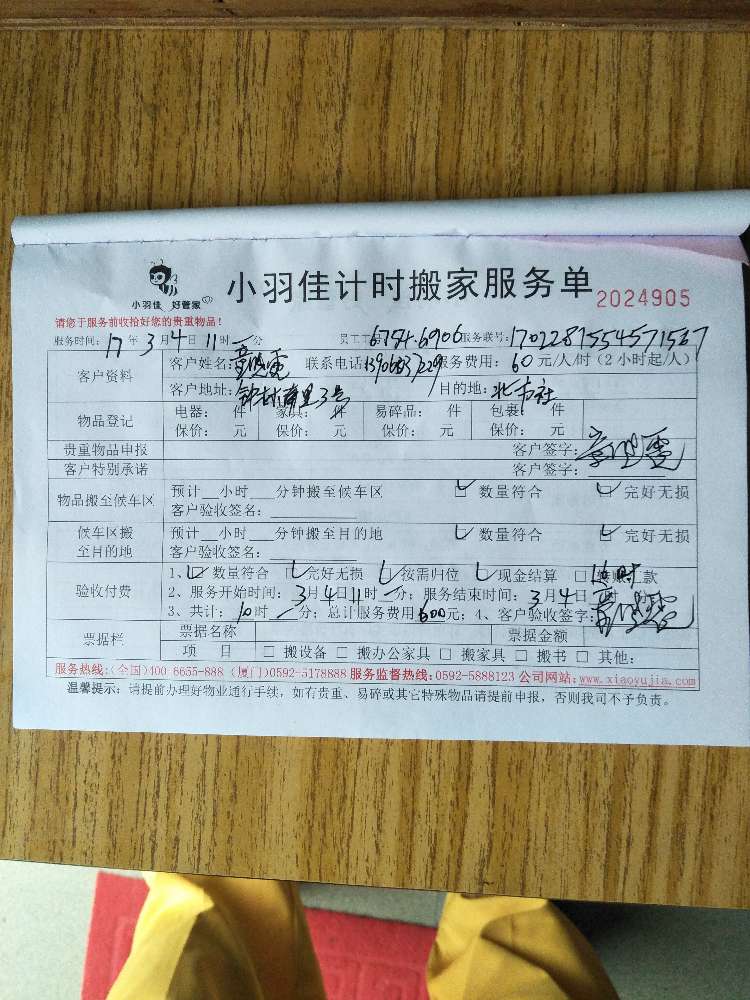 小羽佳 好管家
小羽佳计时搬家服务单 2024905
请您于服务前收拾好您的贵重物品!
服务时间: 17 年 3 月 4 日 11 时 一 分 员工工号: 服务联号:
客户资料 客户姓名: 联系电话: 服务费用: 60 元/人/时(2小时起/人)
客户地址: 3号 目的地:
物品登记 电器: 件 家具: 件 易碎品: 件 包裹: 件
保价: 元 保价: 元 保价: 元 保价: 元
贵重物品申报 客户签字:
客户特别承诺 客户签字:
物品搬至候车区 预计__小时___分钟搬至候车区 □ 数量符合 □ 完好无损
客户验收签名:
候车区搬至目的地 预计__小时___分钟搬至目的地 □ 数量符合 □ 完好无损
客户验收签名:
验收付费 1、□ 数量符合 □ 完好无损 □ 按需归位 □ 现金结算 □ 款
2、服务开始时间: 3 月 4 日 11 时 一 分; 服务结束时间: 3 月 4 日
3、共计: 10 时 一 分; 总计服务费用 600 元; 4、客户验收签字:
票据栏 票据名称 票据金额
项 目 □ 搬设备 □ 搬办公家具 □ 搬家具 □ 搬书 □ 其他:
服务热线:(全国)400-6655-888 (厦门)0592-5178888 服务监督热线:0592-5888123 公司网站:www.xiaoyujia.com
温馨提示: 请提前办理好物业通行手续, 如有贵重、易碎或其它特殊物品请提前申报, 否则我司不予负责。